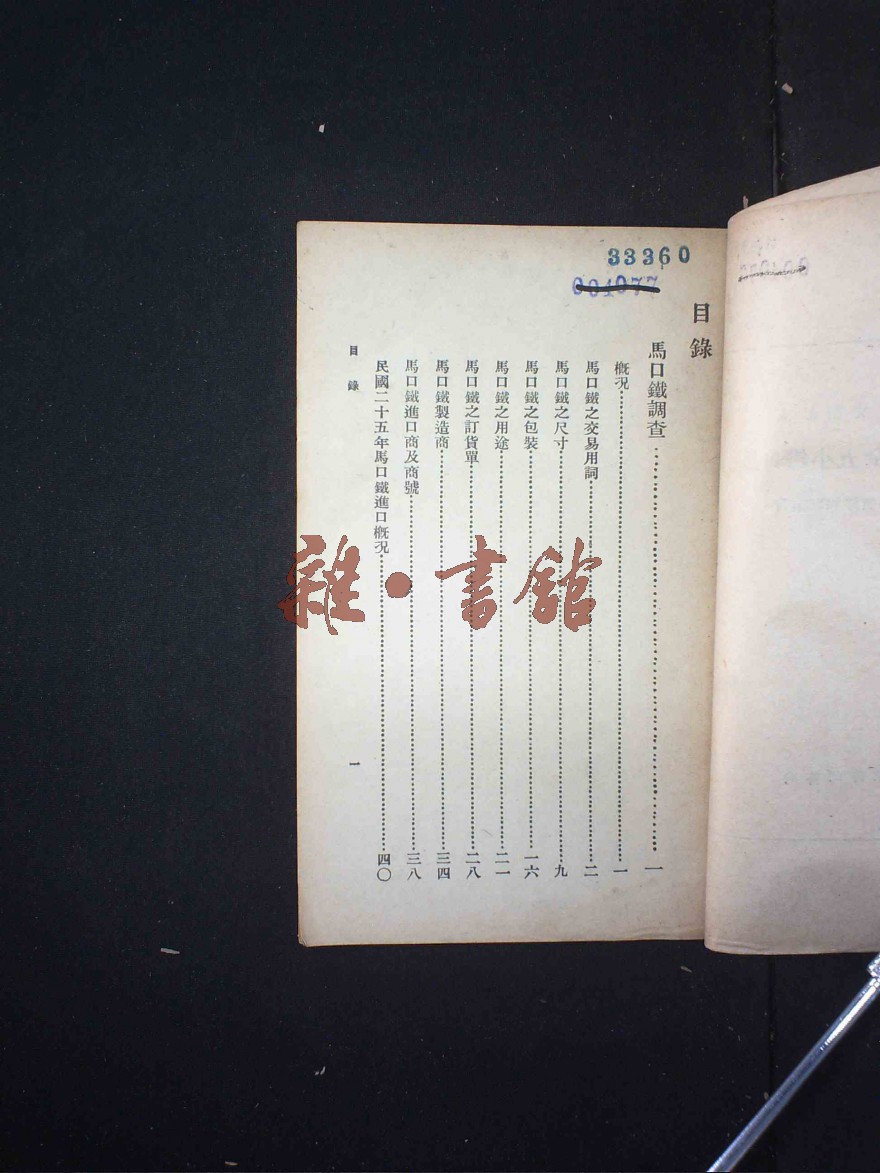 33360
004077
目錄
馬口鐵調查……一
概況……一
馬口鐵之交易用詞……二
馬口鐵之尺寸……九
馬口鐵之包裝……一六
馬口鐵之用途……二一
馬口鐵之訂貨單……二八
馬口鐵製造商……三四
馬口鐵進口商及商號……三八
民國二十五年馬口鐵進口概況……四〇
目錄
一
雜·書館